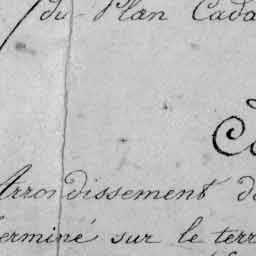 du Plan Cada
Co
Arrondissement de
terminé sur le terr